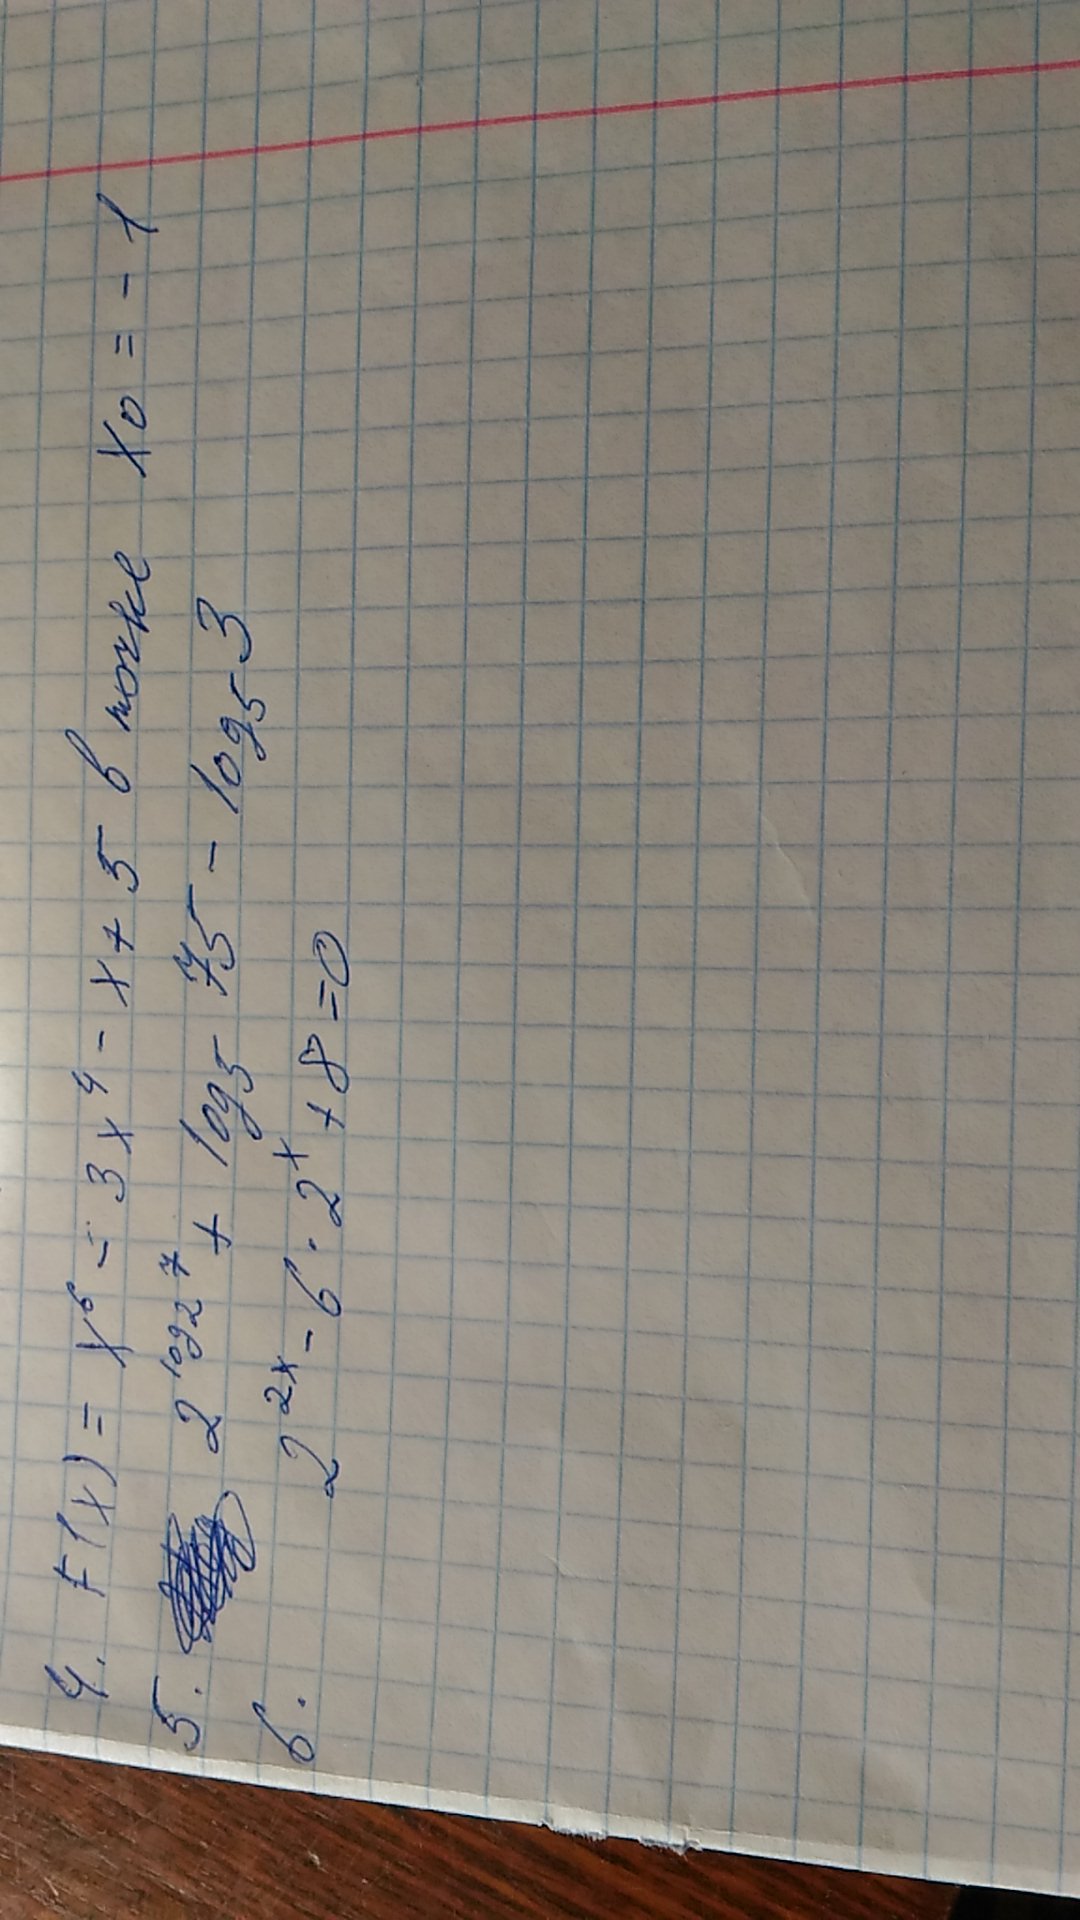 4. F(x) = x⁶ - 3x⁴ - x + 5 в точке x₀ = -1
5. 2^log₂7 + log₅ 75 - log₅ 3
6. 2^2x - 6 · 2^x + 8 = 0